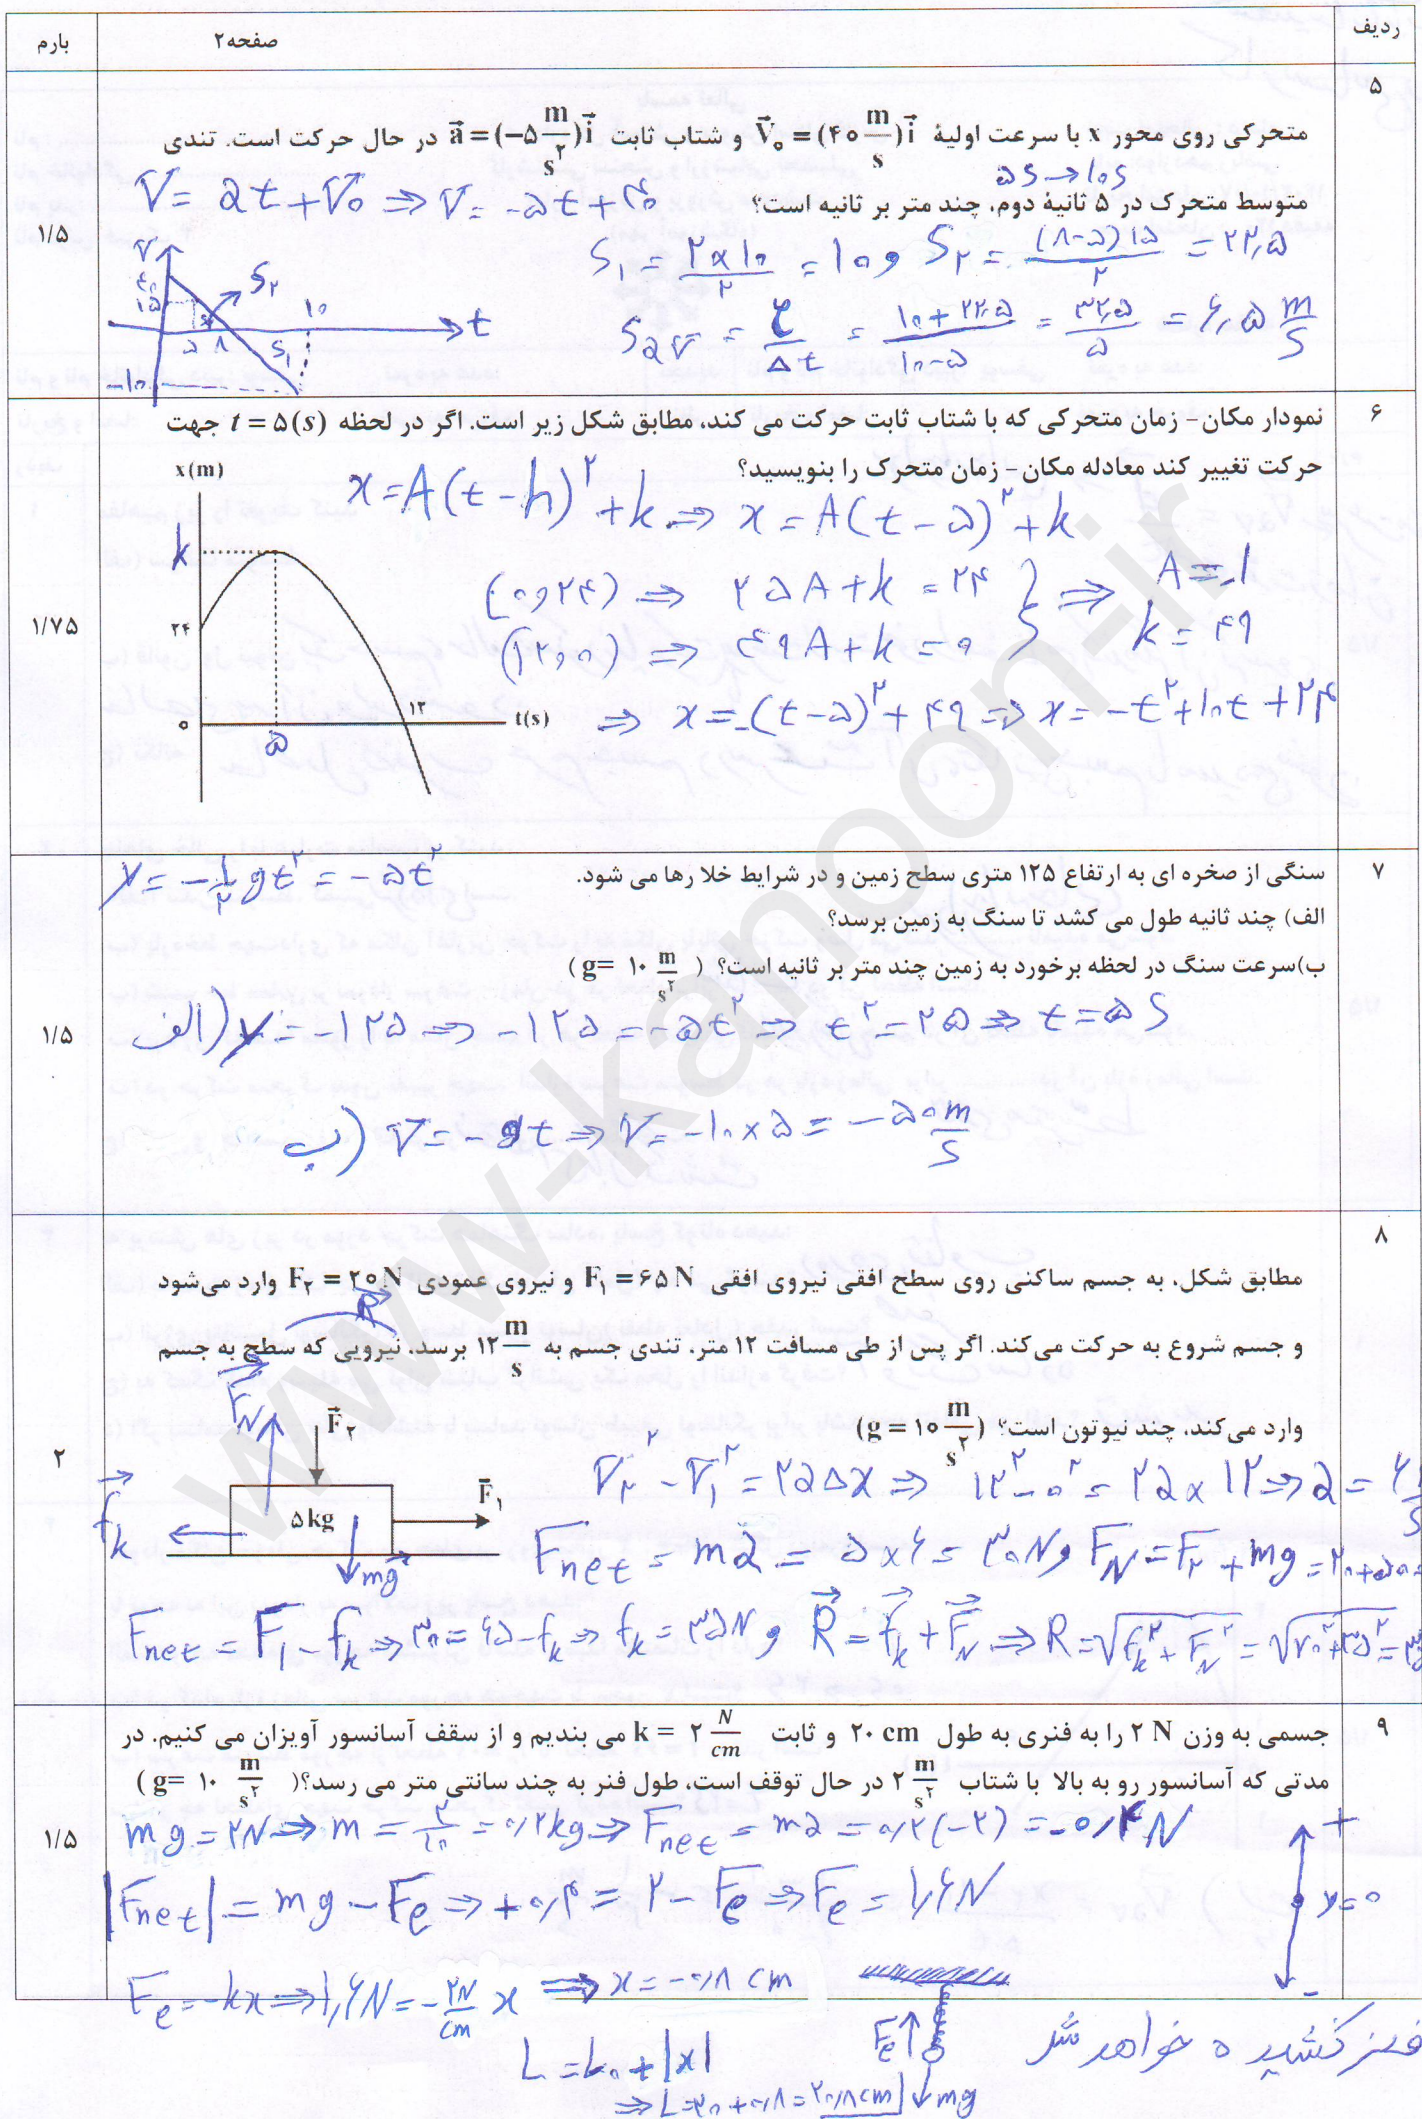 ردیف
صفحه۲
بارم
۵
متحرکی روی محور x با سرعت اولیهٔ V⃗۰ = (۴۰ m/s) i⃗ و شتاب ثابت a⃗ = (−۵ m/s۲) i⃗ در حال حرکت است. تندی
۵s → ۱۰s
متوسط متحرک در ۵ ثانیهٔ دوم، چند متر بر ثانیه است؟
V = at + V۰ ⇒ V = −۵t + ۴۰
۱/۵
S۱ = ۲×۱۰/۲ = ۱۰ و S۲ = (۸−۵)۱۵/۲ = ۲۲٫۵
Sav = ℓ/Δt = ۱۰+۲۲٫۵/۱۰−۵ = ۳۲٫۵/۵ = ۶٫۵ m/s
V
۴۰
۱۵
S۲
۱۰
t
۵
۸
S۱
−۱۰
۶
نمودار مکان- زمان متحرکی که با شتاب ثابت حرکت می کند، مطابق شکل زیر است. اگر در لحظه t = ۵(s) جهت
حرکت تغییر کند معادله مکان- زمان متحرک را بنویسید؟
x(m)
x = A(t − h)۲ + k ⇒ x = A(t − ۵)۲ + k
k
(۰ و ۲۴) ⇒ ۲۵A + k = ۲۴ } ⇒ A = −۱
۲۴
۱/۷۵
(۱۲ و ۰) ⇒ ۴۹A + k = ۰ k = ۴۹
⇒ x = −(t − ۵)۲ + ۴۹ ⇒ x = −t۲ + ۱۰t + ۲۴
۱۲
t(s)
۰
۵
۷
سنگی از صخره ای به ارتفاع ۱۲۵ متری سطح زمین و در شرایط خلا رها می شود.
y = −۱/۲ gt۲ = −۵t۲
الف) چند ثانیه طول می کشد تا سنگ به زمین برسد؟
ب)سرعت سنگ در لحظه برخورد به زمین چند متر بر ثانیه است؟ ( g= ۱۰ m/s۲ )
الف) y = −۱۲۵ ⇒ −۱۲۵ = −۵t۲ ⇒ t۲ = ۲۵ ⇒ t = ۵ s
۱/۵
ب) V = −gt ⇒ V = −۱۰×۵ = −۵۰ m/s
۸
مطابق شکل، به جسم ساکنی روی سطح افقی نیروی افقی F۱ = ۶۵ N و نیروی عمودی F۲ = ۲۰ N وارد می‌شود
R⃗
و جسم شروع به حرکت می‌کند. اگر پس از طی مسافت ۱۲ متر، تندی جسم به ۱۲ m/s برسد، نیرویی که سطح به جسم
وارد می‌کند، چند نیوتون است؟ (g = ۱۰ m/s۲)
F⃗N
F⃗۲
۲
V۲۲ − V۱۲ = ۲aΔx ⇒ ۱۲۲ − ۰۲ = ۲a×۱۲ ⇒ a = ۶
F⃗۱
۵kg
f⃗k
mg⃗
Fnet = ma = ۵×۶ = ۳۰N و FN = F۲ + mg = ۲۰+۵۰=
Fnet = F۱ − fk ⇒ ۳۰ = ۶۵ − fk ⇒ fk = ۳۵N و R⃗ = f⃗k + F⃗N ⇒ R = √fk۲ + FN۲ = √۷۰۲+۳۵۲ =
۹
جسمی به وزن ۲ N را به فنری به طول ۲۰ cm و ثابت k = ۲ N/cm می بندیم و از سقف آسانسور آویزان می کنیم. در
مدتی که آسانسور رو به بالا با شتاب ۲ m/s۲ در حال توقف است، طول فنر به چند سانتی متر می رسد؟( g= ۱۰ m/s۲ )
۱/۵
mg = ۲N ⇒ m = ۲/۱۰ = ۰٫۲kg ⇒ Fnet = ma = ۰٫۲(−۲) = −۰٫۴N
+
|Fnet| = mg − Fe ⇒ +۰٫۴ = ۲ − Fe ⇒ Fe = ۱٫۶N
y = ۰
−
Fe = −kx ⇒ ۱٫۶N = −۲N/cm x ⇒ x = −۰٫۸ cm
فنر کشیده خواهد شد
Fe
L = L۰ + |x|
⇒ L = ۲۰ + ۰٫۸ = ۲۰٫۸cm
mg
www-kanoon-ir